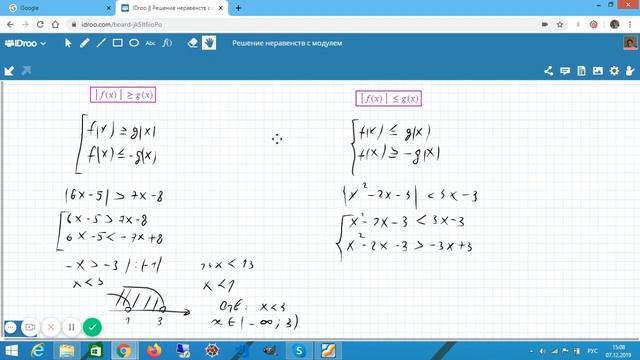 Google
IDroo || Решение неравенств с м
idroo.com/board-jk5It6ioPo
IDroo
Abc
f()
Решение неравенств с модулем
|f(x)| ≥ g(x)
f(x) ≥ g(x)
f(x) ≤ -g(x)
|6x-5| > 7x-8
6x-5 > 7x-8
6x-5 < -7x+8
-x > -3 |:(-1)
x < 3
13x < 13
x < 1
1 3
Отв: x < 3
x ∈ (-∞; 3)
|f(x)| ≤ g(x)
f(x) ≤ g(x)
f(x) ≥ -g(x)
|x²-2x-3| < 3x-3
x²-2x-3 < 3x-3
x²-2x-3 > -3x+3
РУС
15:08
07.12.2019